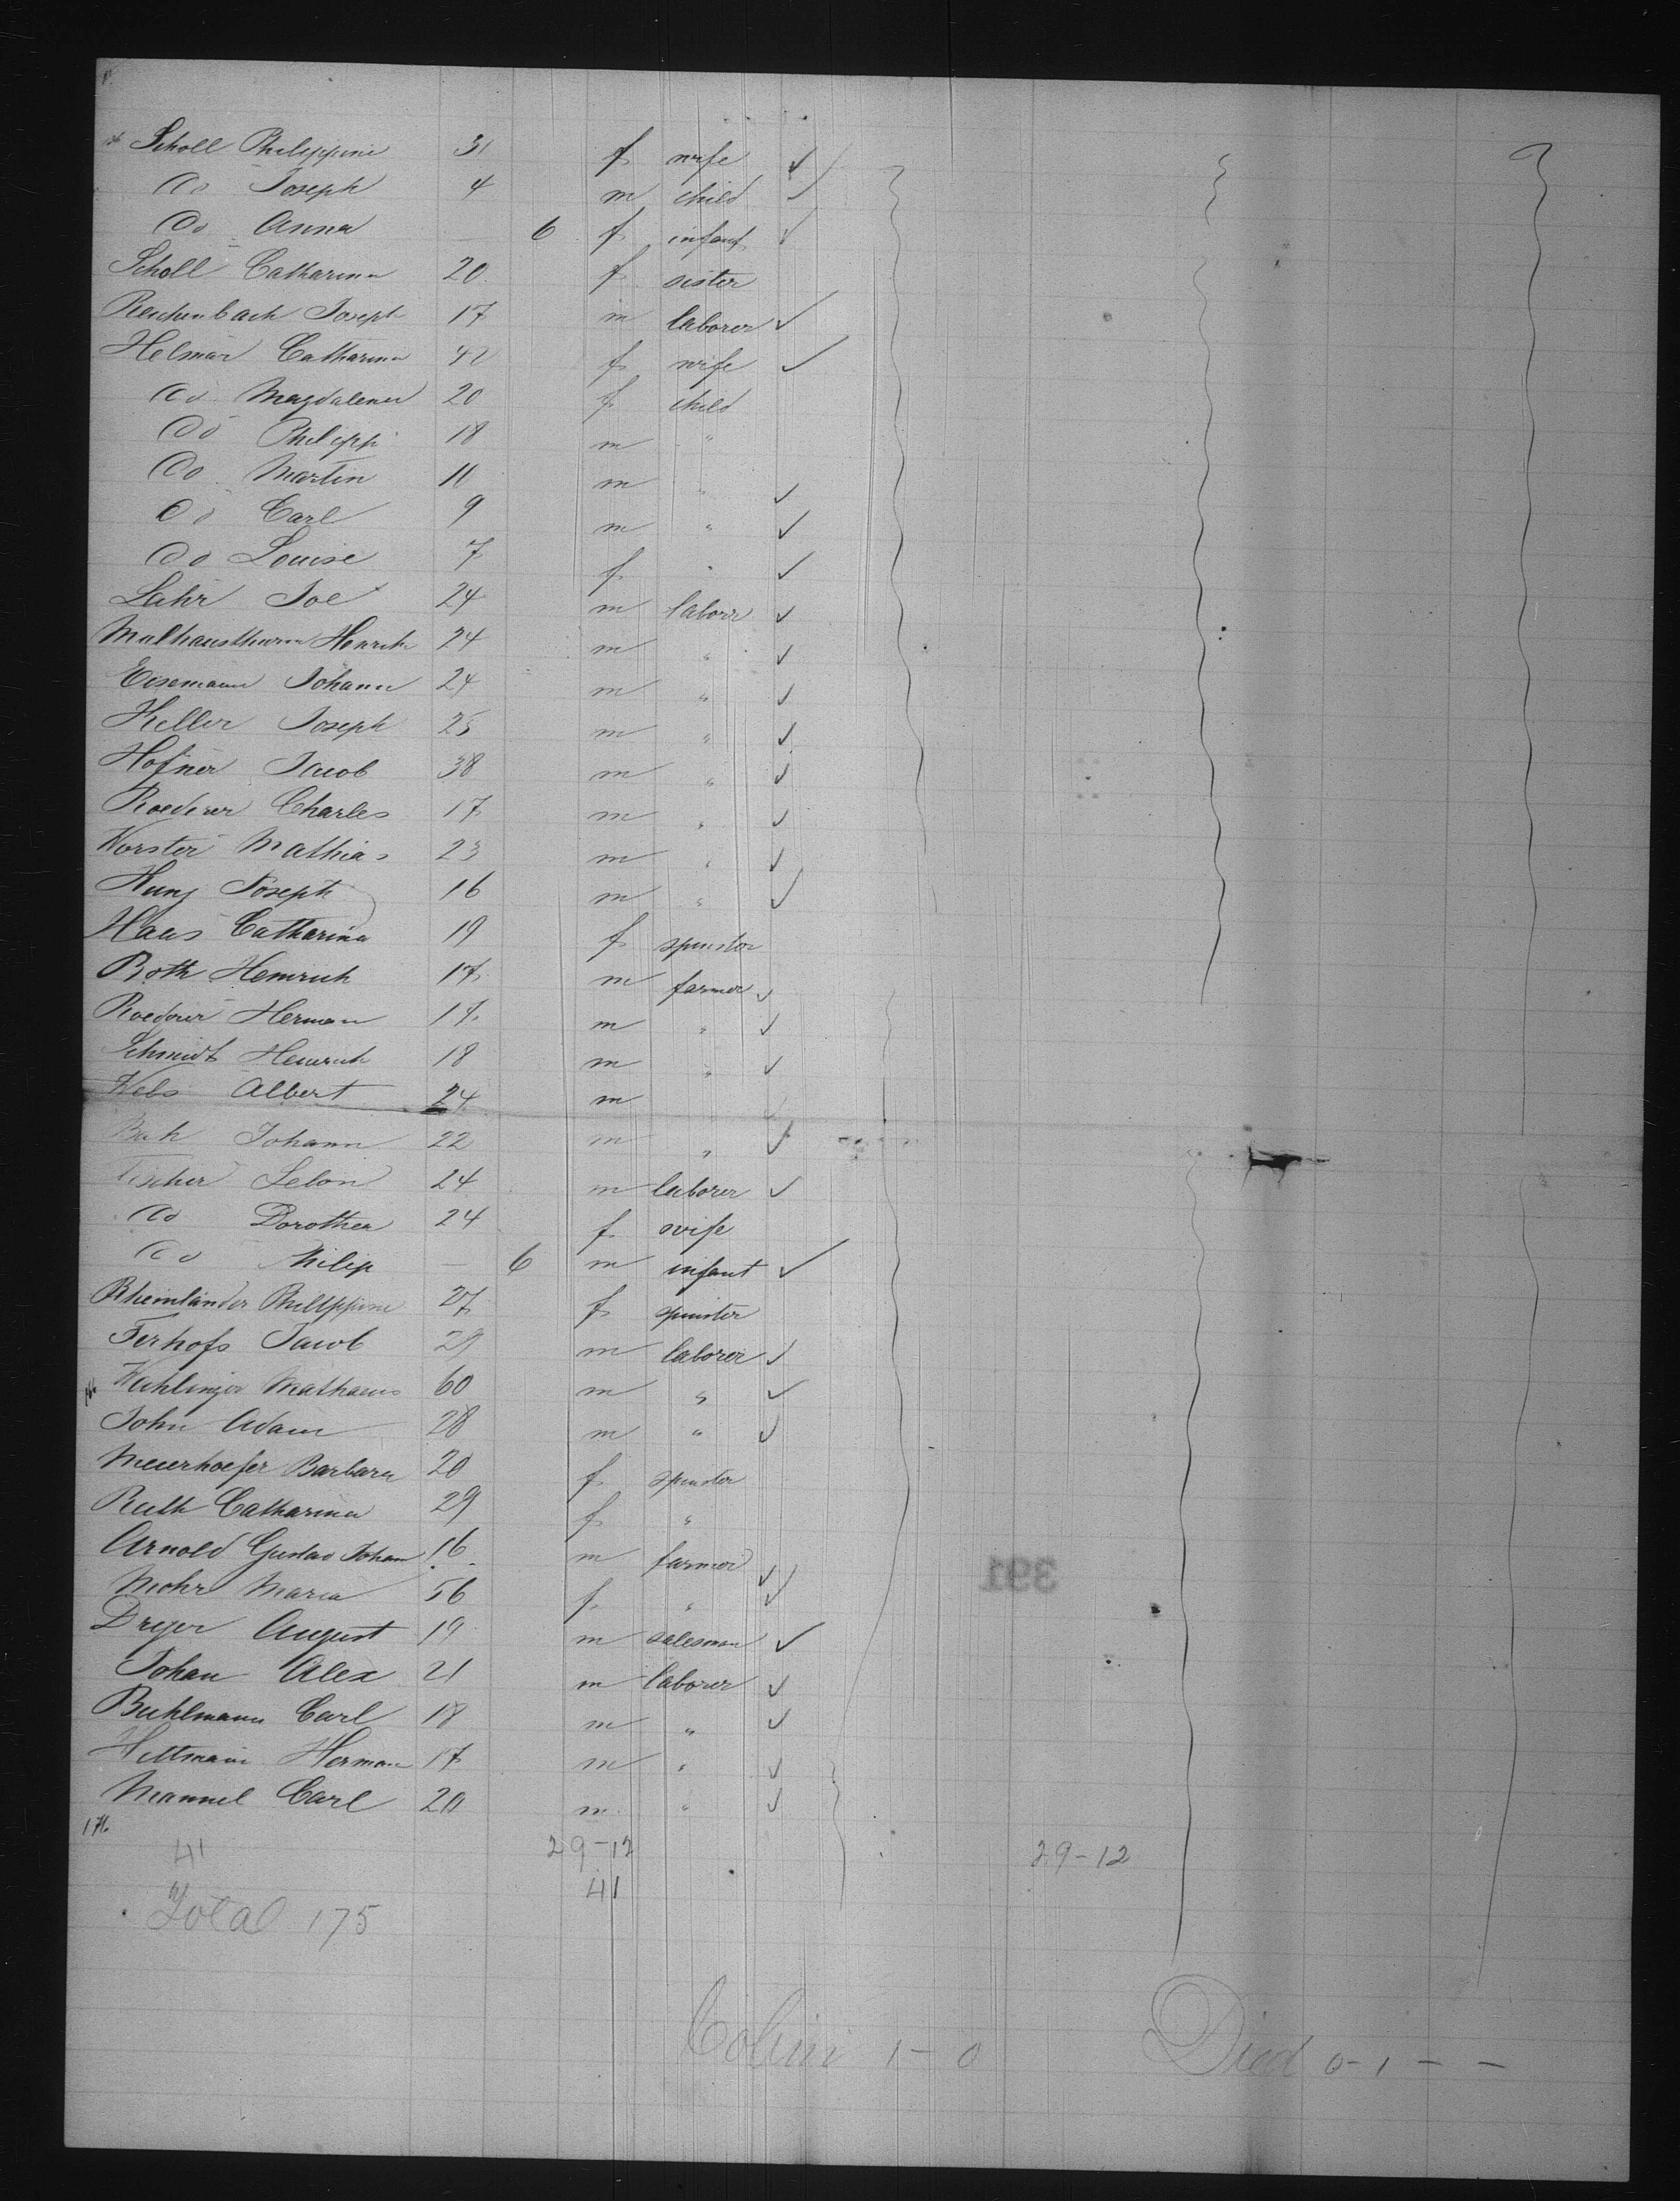 Scholl Philippine 31 f wife ✓
do Joseph 4 m child ✓
do Anna — 6 f infant ✓
Scholl Catharina 20 f sister
Reichenbach Joseph 17 m laborer ✓
Helmar Catharina 42 f wife ✓
do Magdalena 20 f child
do Philipp 18 m "
do Martin 11 m " ✓
do Carl 9 m " ✓
do Louise 7 f " ✓
Lahr Joe 24 m laborr ✓
Heinrich 24 m " ✓
Eisemann Johann 24 m " ✓
Heller Joseph 25 m " ✓
Hofner Jacob 38 m " ✓
Roederer Charles 17 m " ✓
Worster Mathias 23 m " ✓
Joseph 16 m " ✓
Haas Catharina 19 f spinster
Roth Heinrich 17 m farmer ✓
Roederer Herman 17 m " ✓
Schmidt Heinrich 18 m " ✓
Albert 24 m " ✓
Johann 22 m " ✓
Fischer 24 m laborer ✓
do Dorothea 24 f wife
do Philip — 6 m infant ✓
Rheinländer Philippine 27 f spinster
Ferhofs Jacob 29 m laborer ✓
Mathaeus 60 m " ✓
John Adam 28 m " ✓
Meuerhoefer Barbara 20 f spinster
Ruth Catharina 29 f "
Arnold Gustav Johan 16 m farmer ✓
Mohr Maria 56 f " ✓
Dreyer August 19 m salesman ✓
Johan Alex 21 m laborer ✓
Buhlmann Carl 18 m " ✓
Hettmann Herman 17 m " ✓
Mannel Carl 20 m " ✓
41 29-12 29-12
41
Total 175
391
1-0 Died 0-1--